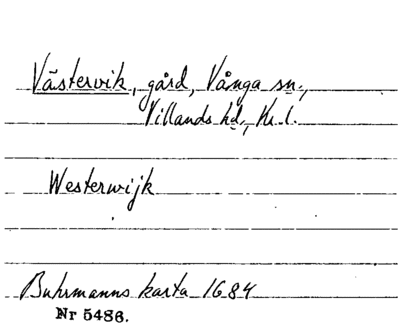 Västervik, gård, Vånga sn.,
Villands hd., Kr. l.
Westerwijk
Buhrmanns karta 1684
Nr 5486.